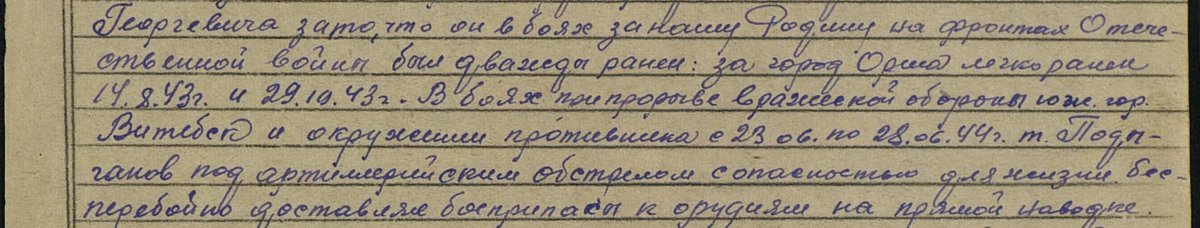 Георгевича за то, что он в боях за нашу Родину на фронтах Отече-
ственной войны был дважды ранен: за город Орша легко ранен
14.8.43г. и 29.10.43г. В боях при прорыве вражеской обороны юж. гор.
Витебск и окружении противника с 23.06. по 28.06.44г. т. Поды-
ганов под артиллерийским обстрелом с опасностью для жизни бес-
перебойно доставлял боеприпасы к орудиям на прямой наводке.